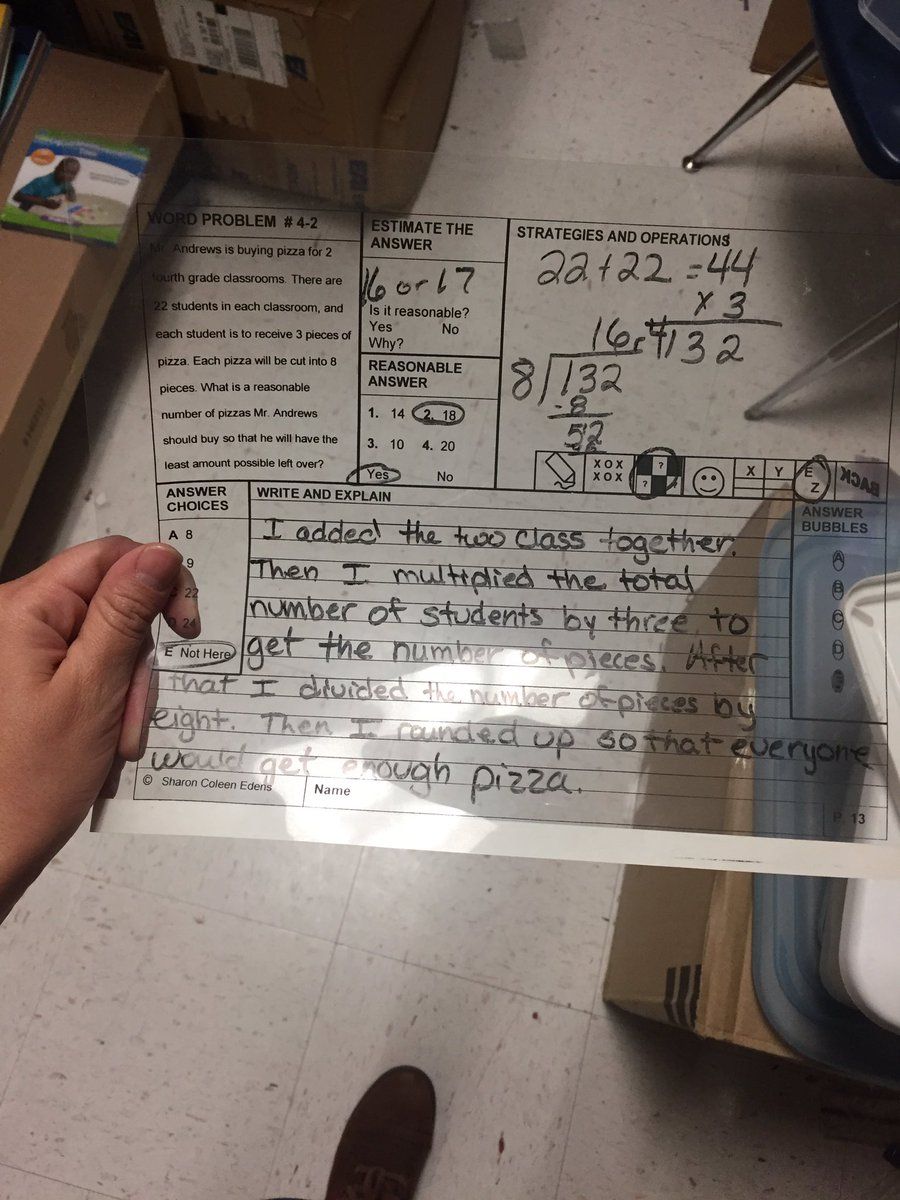 WORD PROBLEM # 4-2
Mr. Andrews is buying pizza for 2
fourth grade classrooms. There are
22 students in each classroom, and
each student is to receive 3 pieces of
pizza. Each pizza will be cut into 8
pieces. What is a reasonable
number of pizzas Mr. Andrews
should buy so that he will have the
least amount possible left over?
ESTIMATE THE
ANSWER
16 or 17
Is it reasonable?
Yes No
Why?
REASONABLE
ANSWER
1. 14 2. 18
3. 10 4. 20
Yes No
STRATEGIES AND OPERATIONS
22+22 =44
x 3
132
16r4
8 132
-8
52
X O X
X O X
?
?
X Y
E
Z
BACK
ANSWER
CHOICES
A 8
9
22
24
E Not Here
WRITE AND EXPLAIN
I added the two class together.
Then I multiplied the total
number of students by three to
get the number of pieces. After
that I divided the number of pieces by
eight. Then I rounded up so that everyone
would get enough pizza.
ANSWER
BUBBLES
A
B
C
D
© Sharon Coleen Edens
Name
P. 13